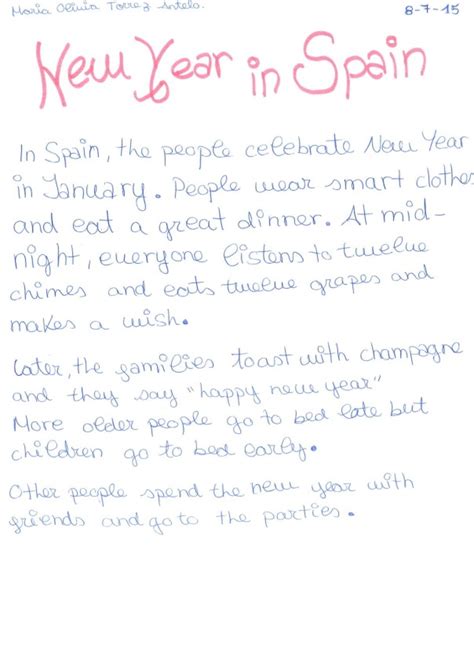 Maria Olivia Torrez Antelo.
8-7-15
New Year in Spain
In Spain, the people celebrate New Year
in January. People wear smart clothes
and eat a great dinner. At mid-
night, everyone listens to twelve
chimes and eats twelve grapes and
makes a wish.
Later, the families toast with champagne
and they say "happy new year"
More older people go to bed late but
children go to bed early.
Other people spend the new year with
friends and go to the parties.